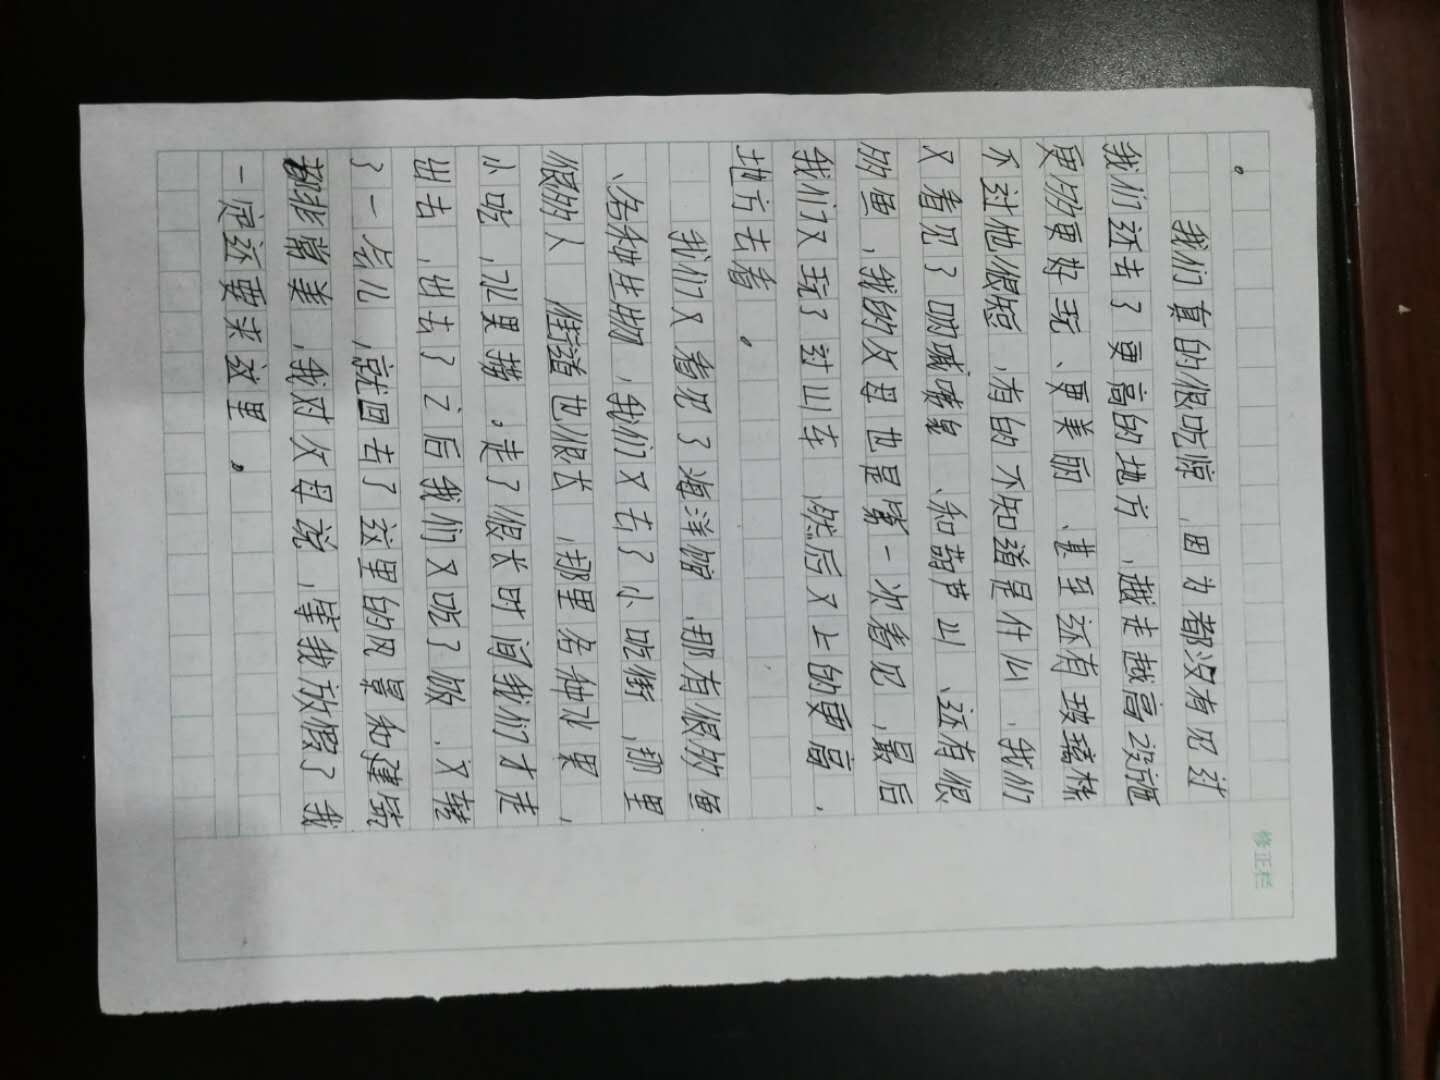 。
我们真的很吃惊，因为都没有见过
我们还去了更高的地方，越走越高设施
更的更好玩、更美丽、甚至还有玻璃栈
不过他很短，有的不知道是什么，我们
又看见了呐喊喷泉、和葫芦山、还有很
的鱼，我的父母也是第一次看见，最后
我们又玩了过山车，然后又上的更高，
地方去看。
我们又看见了海洋馆、那有很的鱼
、各种生物，我们又去了小吃街，那里
很的人，街道也很长，那里各种水果，
小吃，几里捞。走了很长时间我们才走
出去，出去了之后我们又吃了饭，又转
了一会儿，就回去了这里的风景和建筑
都非常美，我对父母说，等我放假了我
一定还要来这里。
修正栏